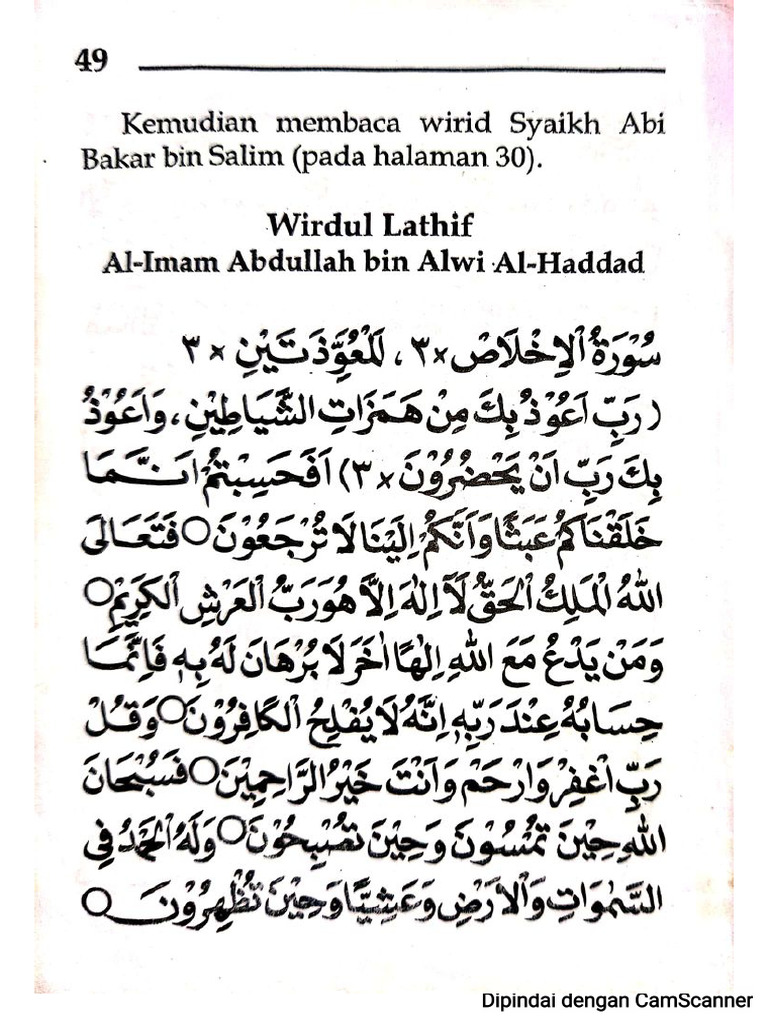 49
Kemudian membaca wirid Syaikh Abi
Bakar bin Salim (pada halaman 30).
Wirdul Lathif
Al-Imam Abdullah bin Alwi Al-Haddad
سُوْرَةُ اْلاِخْلَاصْ ×٣ ، لَلْعُوَّذَتَيْنِ ×٣
(رَبِّ اَعُوْذُ بِكَ مِنْ هَمَزَاتِ الشَّيَاطِيْنِ، وَاَعُوْذُ
بِكَ رَبِّ اَنْ يَحْضُرُوْنَ ×٣) اَفَحَسِبْتُمْ اَنَّمَا
خَلَقْنَاكُمْ عَبَثًا وَاَنَّكُمْ اِلَيْنَا لَا تُرْجَعُوْنَ○ فَتَعَالَى
اللهُ الْمَلِكُ الْحَقُّ لَآ اِلٰهَ اِلَّا هُوَ رَبُّ الْعَرْشِ الْكَرِيْمِ○
وَمَنْ يَدْعُ مَعَ اللهِ اِلٰهًا اٰخَرَ لَا بُرْهَانَ لَهُ بِهِ فَاِنَّمَا
حِسَابُهُ عِنْدَ رَبِّهِ اِنَّهُ لَا يُفْلِحُ الْكَافِرُوْنَ○ وَقُلْ
رَبِّ اغْفِرْ وَارْحَمْ وَاَنْتَ خَيْرُ الرَّاحِمِيْنَ○ فَسُبْحَانَ
اللهِ حِيْنَ تُمْسُوْنَ وَحِيْنَ تُصْبِحُوْنَ○ وَلَهُ الْحَمْدُ فِى
السَّمٰوَاتِ وَاْلاَرْضِ وَعَشِيًّا وَحِيْنَ تُظْهِرُوْنَ○
Dipindai dengan CamScanner